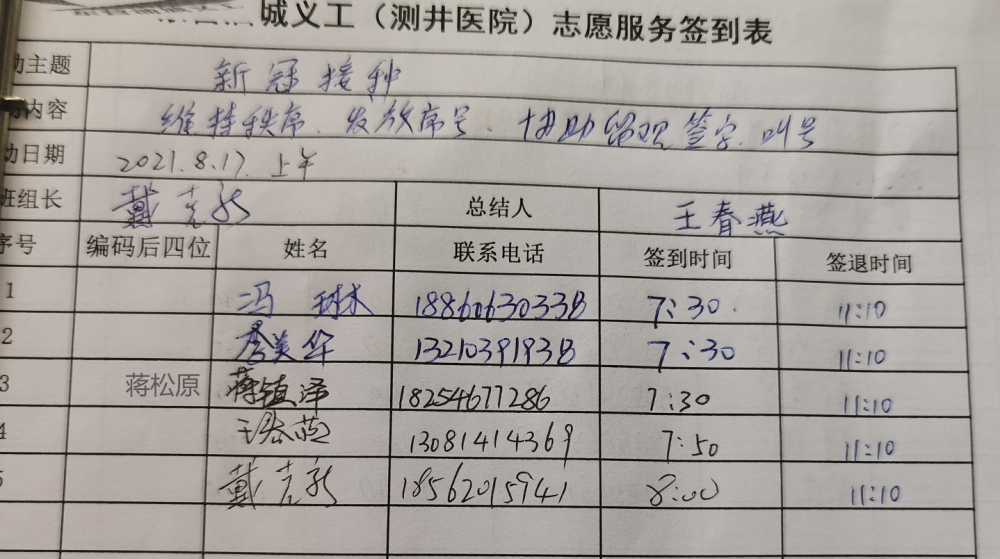 诚义工（测井医院）志愿服务签到表
动主题 新冠接种
动内容 维持秩序、发放序号、协助留观签字、叫号
动日期 2021.8.17.上午
班组长 戴克彪 总结人 王春燕
序号 编码后四位 姓名 联系电话 签到时间 签退时间
1 冯琳 18860630338 7:30 11:10
2 秀美华 13210391938 7:30 11:10
3 蒋松原 蒋镇泽 18254677286 7:30 11:10
4 13081414369 7:50 11:10
5 戴克彪 18562015941 8:00 11:10